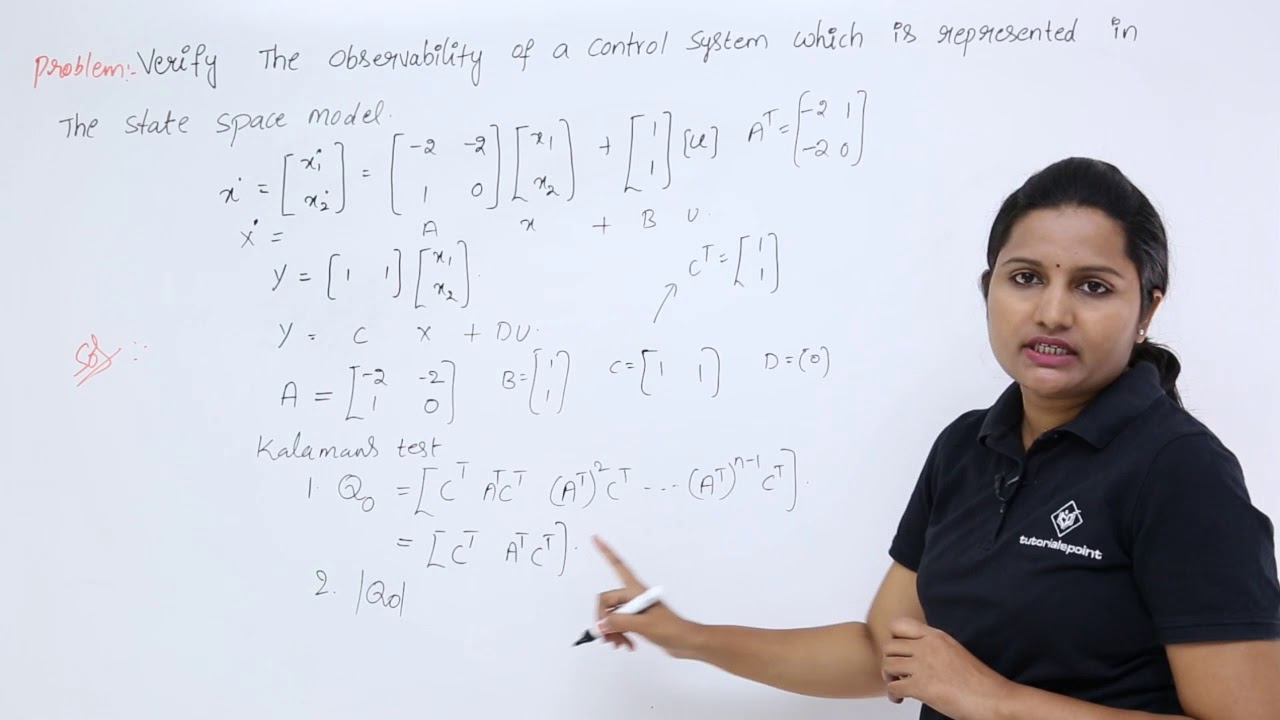 Problem:- Verify The Observability of a control system which is represented in
The state space model.
ẋ = [ẋ1 ẋ2] = [-2 -2 1 0] [x1 x2] + [1 1] [u] Aᵀ = [-2 1 -2 0]
Ẋ = A x + B U.
Y = [1 1] [x1 x2].
Cᵀ = [1 1]
Y = C X + DU.
Sol :-
A = [-2 -2 1 0] B = [1 1] C = [1 1] D = [0]
Kalamans test
1. Q₀ = [Cᵀ AᵀCᵀ (Aᵀ)²Cᵀ --- (Aᵀ)ⁿ⁻¹ Cᵀ].
= [Cᵀ AᵀCᵀ].
2. |Q₀|
tutorialspoint